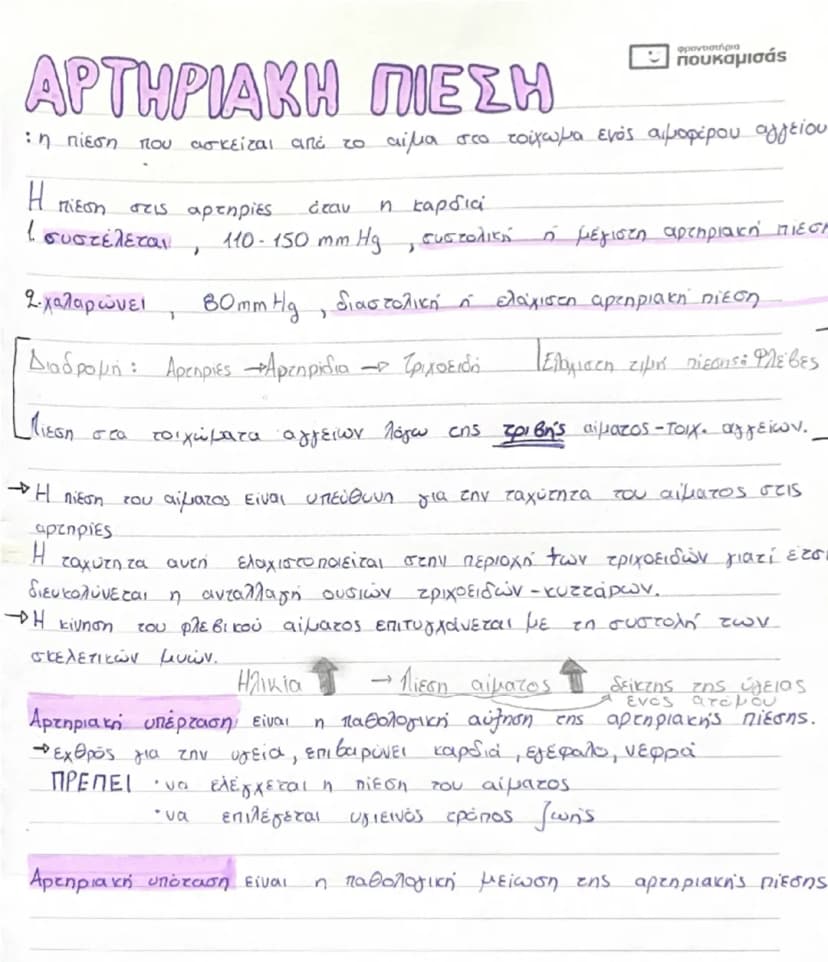 φροντιστήρια
πουκαμισάς
ΑΡΤΗΡΙΑΚΗ ΠΙΕΣΗ
: η πίεση που ασκείται από το αίμα στο τοίχωμα ενός αιμοφόρου αγγείου
Η πίεση στις αρτηρίες όταν η καρδιά
1. συστέλεται , 110-150 mmHg , συστολική ή μέγιστη αρτηριακή πίεση
2. χαλαρώνει , 80mmHg , διαστολική ή ελάχιστη αρτηριακή πίεση
Διαδρομή : Αρτηρίες → Αρτηρίδια → Τριχοειδή | Ελάχιστη τιμή πίεσης: Φλέβες
Πίεση στα τοιχώματα αγγείων λόγω της τριβής αίματος-τοιχ. αγγείων.
→ Η πίεση του αίματος είναι υπεύθυνη για την ταχύτητα του αίματος στις
αρτηρίες
Η ταχύτητα αυτή ελαχιστοποιείται στην περιοχή των τριχοειδών γιατί έτσι
διευκολύνεται η ανταλλαγή ουσιών τριχοειδών-κυττάρων.
→ Η κίνηση του φλεβικού αίματος επιτυγχάνεται με τη συστολή των
σκελετικών μυών.
Ηλικία ↑ → Πίεση αίματος ↑ δείκτης της υγείας
ενός ατόμου
Αρτηριακή υπέρταση είναι η παθολογική αύξηση της αρτηριακής πίεσης.
→ εχθρός για την υγεία, επιβαρύνει καρδιά, εγέφαλο, νεφρά
ΠΡΕΠΕΙ · να ελέγχεται η πίεση του αίματος
· να επιλέγεται υγιεινός τρόπος ζωής
Αρτηριακή υπόταση είναι η παθολογική μείωση της αρτηριακής πίεσης